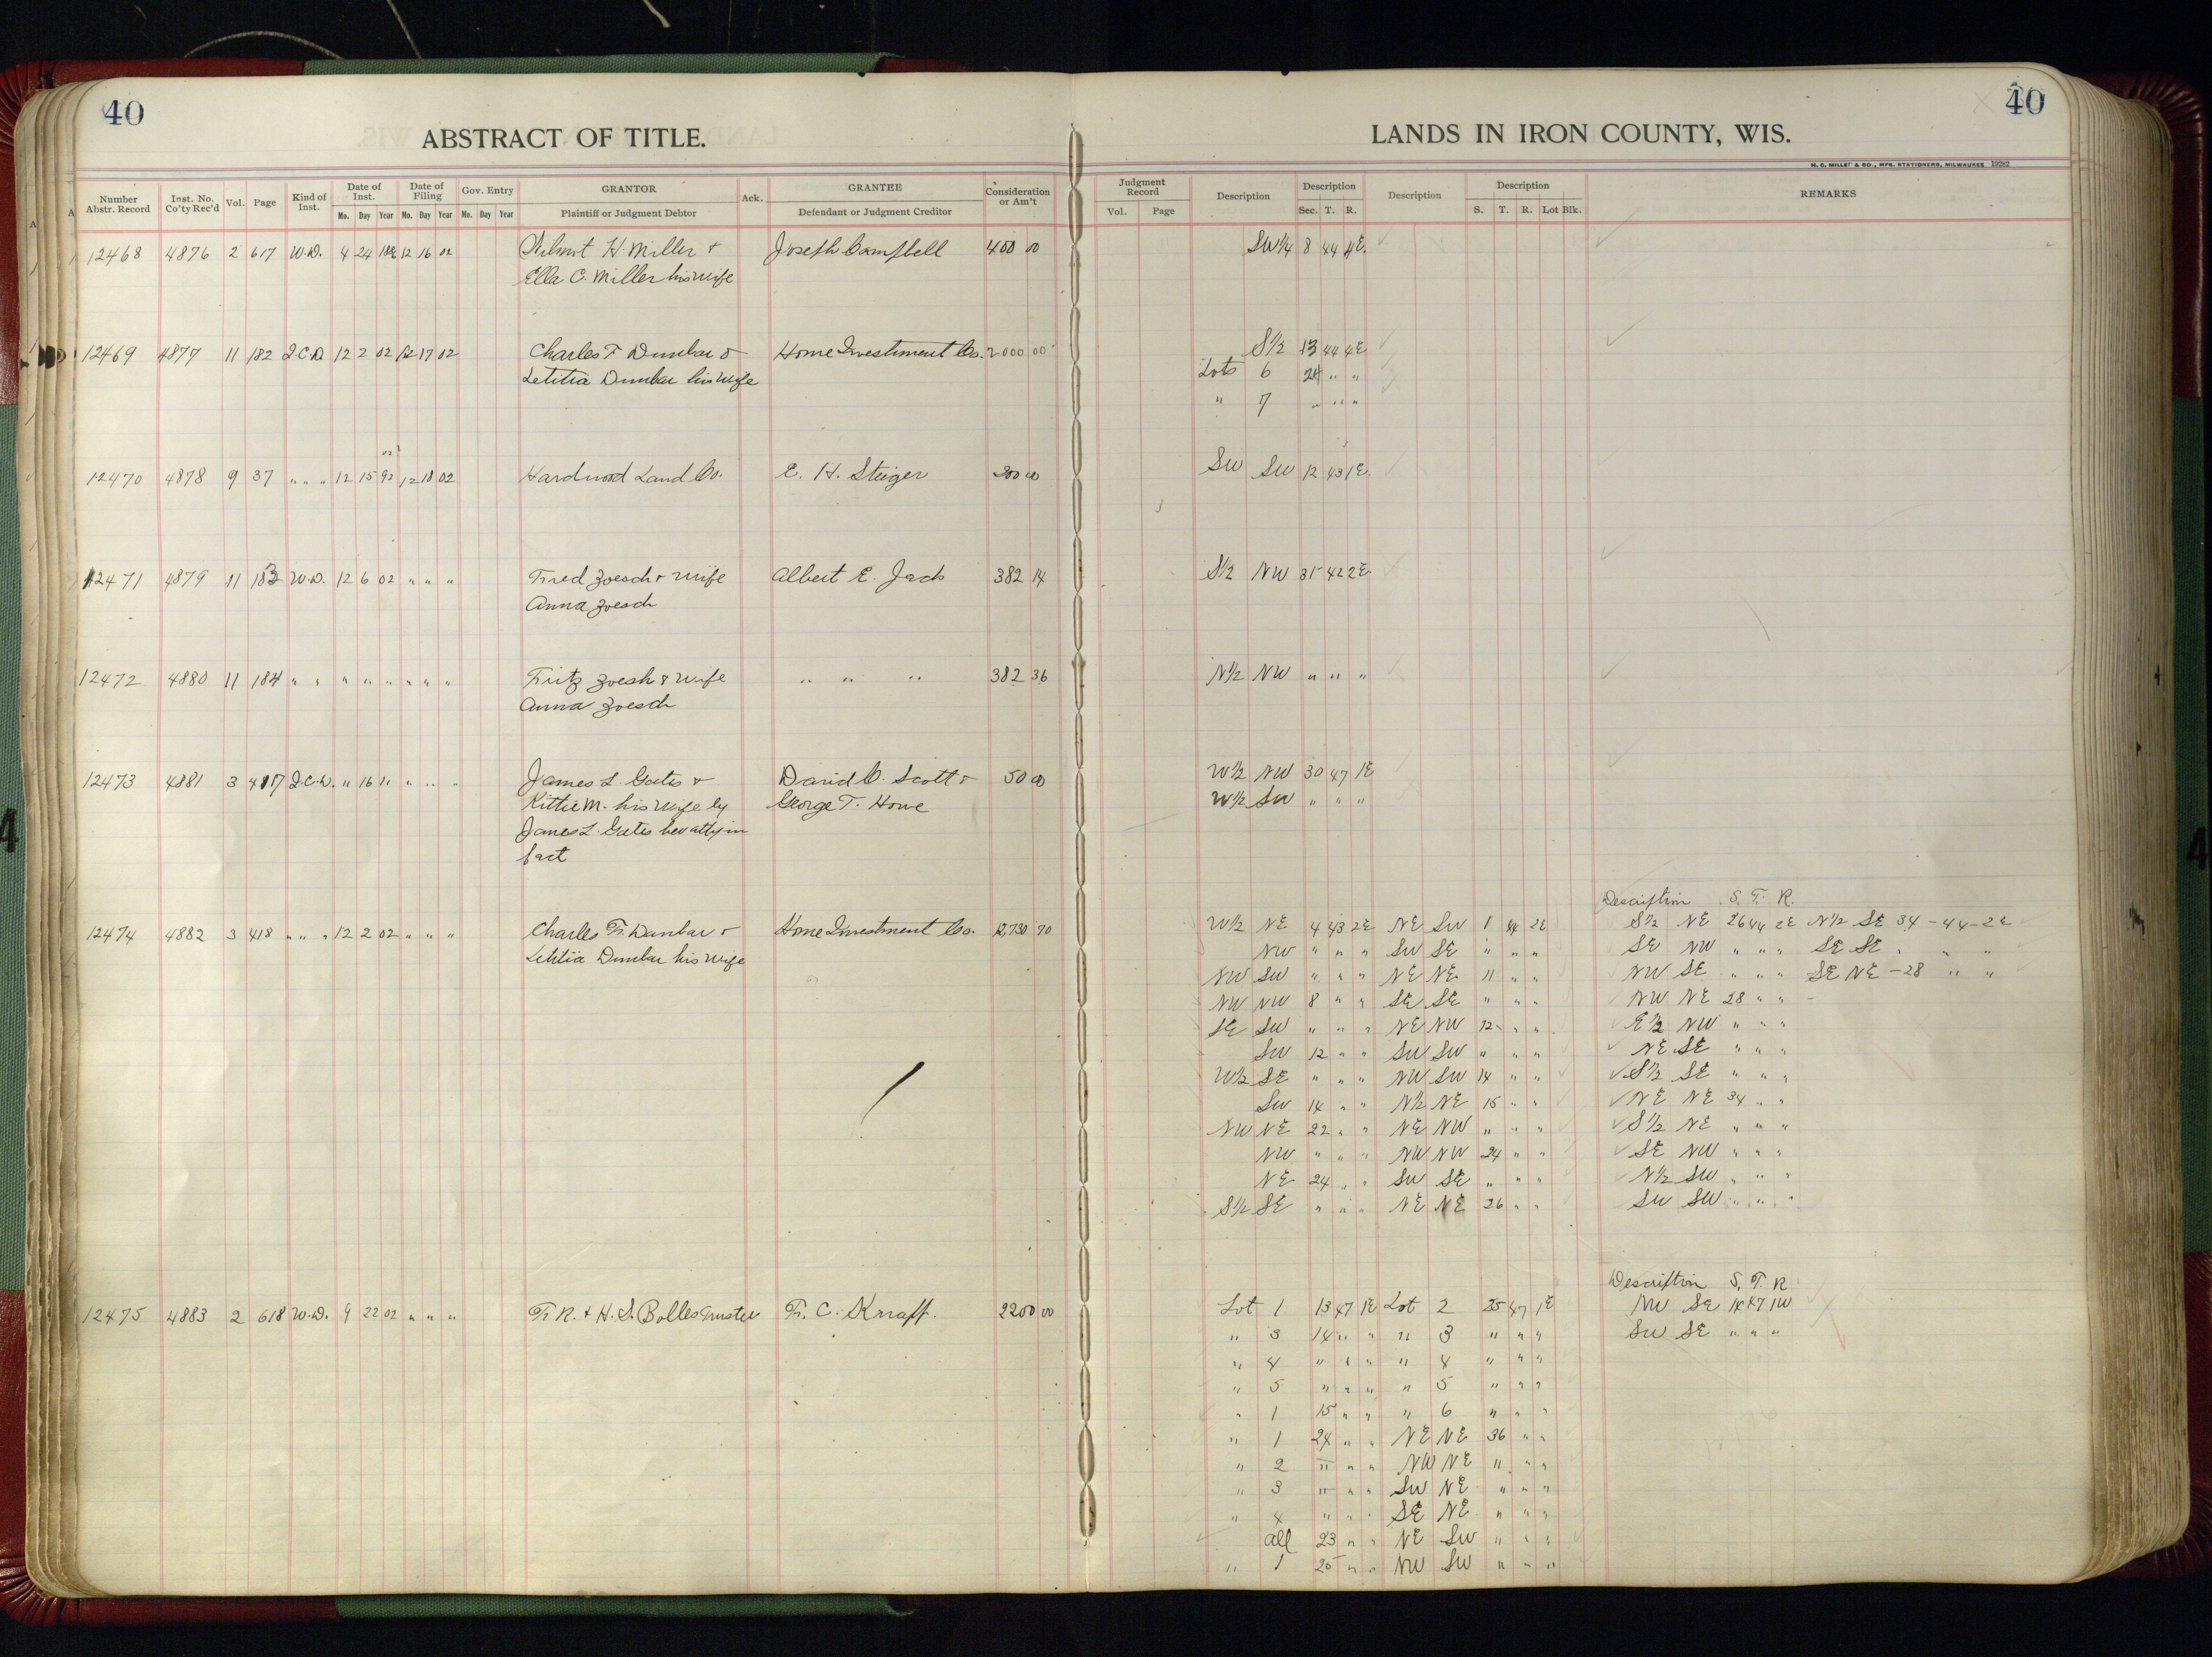 40
ABSTRACT OF TITLE.
LANDS IN IRON COUNTY, WIS.
40
H. C. MILLER & CO., MFG. STATIONERS, MILWAUKEE 19282
Number Abstr. Record Inst. No. Co'ty Rec'd Vol. Page Kind of Inst. Date of Inst. Mo. Day Year Date of Filing Mo. Day Year Gov. Entry Mo. Day Year GRANTOR Plaintiff or Judgment Debtor Ack. GRANTEE Defendant or Judgment Creditor Consideration or Am't
Judgment Record Vol. Page Description Description Sec. T. R. Description Description S. T. R. Lot Blk. REMARKS
12468 4876 2 617 W.D. 4 24 12 16 02 Wilmot H. Miller & Joseph Campbell 400 00 SW¼ 8 44 4E
Ella C. Miller his wife
12469 4877 11 182 Q.C.D 12 2 02 12 17 02 Charles F Dunbar & Home Investment Co. 2000 00 S½ 13 44 4E
Letitia Dunbar his wife Lots 6 24 " "
" 7 " " "
02?
12470 4878 9 37 " " " 12 15 92 12 18 02 Hardwood Land Co. E. H. Steiger 200 00 SW SW 12 43 1E
12471 4879 11 183 W.D. 12 6 02 " " " Fred Zoesch & wife Albert E. Jack 382 14 S½ NW 31 42 2E
Anna Zoesch
12472 4880 11 184 " " " " " " " " Fritz Zoesh & wife " " " 382 36 N½ NW " " "
Anna Zoesch
12473 4881 3 417 Q.C.D. " 16 " " " " James L. Gates & David C. Scott & 50 00 W½ NW 30 47 1E
Kittie M. his wife by George T. Howe W½ SW " " "
James L. Gates her atty in
fact
Description S. T. R.
12474 4882 3 418 " " " 12 2 02 " " " Charles F. Dunbar & Home Investment Co. 12,730 70 W½ NE 4 43 2E NE SW 1 44 2E S½ NE 26 44 2E N½ SE 34-44-2E
Letitia Dunbar his wife NW " " " SW SE " " " SE NW " " " SE SE " " "
NW SW " " " NE NE 11 " " NW SE " " " SE NE-28 " "
NW NW 8 " " SE SE " " " NW NE 28 " "
SE SW " " " NE NW 12 " " E½ NW " " "
SW 12 " " SW SW " " " NE SE " " "
W½ SE " " " NW SW 14 " " S½ SE " " "
SW 14 " " N½ NE 15 " " NE NE 34 " "
NW NE 22 " " NE NW " " " S½ NE " " "
NW " " " NW NW 24 " " SE NW " " "
NE 24 " " SW SE " " " N½ SW " " "
S½ SE " " " NE NE 26 " " SW SW " " "
Description S. T. R.
12475 4883 2 618 W.D. 9 22 02 " " " F. R. & H. S. Bolles Trustee F. C. Knapp. 2200 00 Lot 1 13 47 1E Lot 2 25 47 1E NW SE 14 47 1W
" 3 14 " " " 3 " " " SW SE " " "
" 4 " " " " 4 " " "
" 5 " " " " 5 " " "
" 1 15 " " " 6 " " "
" 1 24 " " NE NE 36 " "
" 2 " " " NW NE " " "
" 3 " " " SW NE " " "
" 4 " " " SE NE " " "
all 23 " " NE SW " " "
" 1 25 " " NW SW " " "